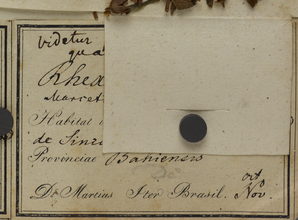 videtur
Rhex
Marcet
Habitat
de Sinc
Provinciae Bahiensis
Dr Martius Iter Brasil. Nov
oct